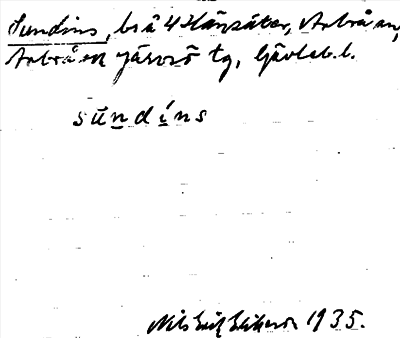 Sundins, br å 4 Hänsätter, Arbrå sn,
Arbrå en Järvsö tg, Gävleb. l.
sundíns
Nils Erik Eriksson 1935.